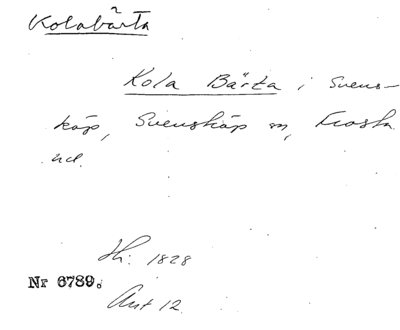 Kolabärta
Kola Bärta i Svens-
käp, Svenskäp sn, Frosta
hd.
Hf: 1828
Nr 6789.
Ant 12.